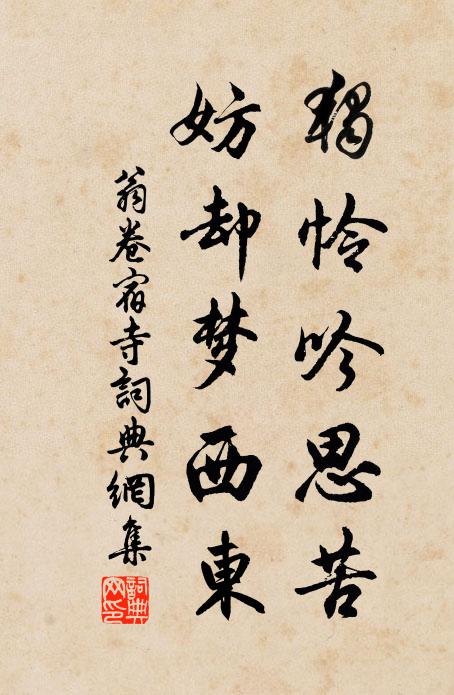 獨怜吟思苦
妨却梦西東
翁卷宿寺詞典網集
詞典网印